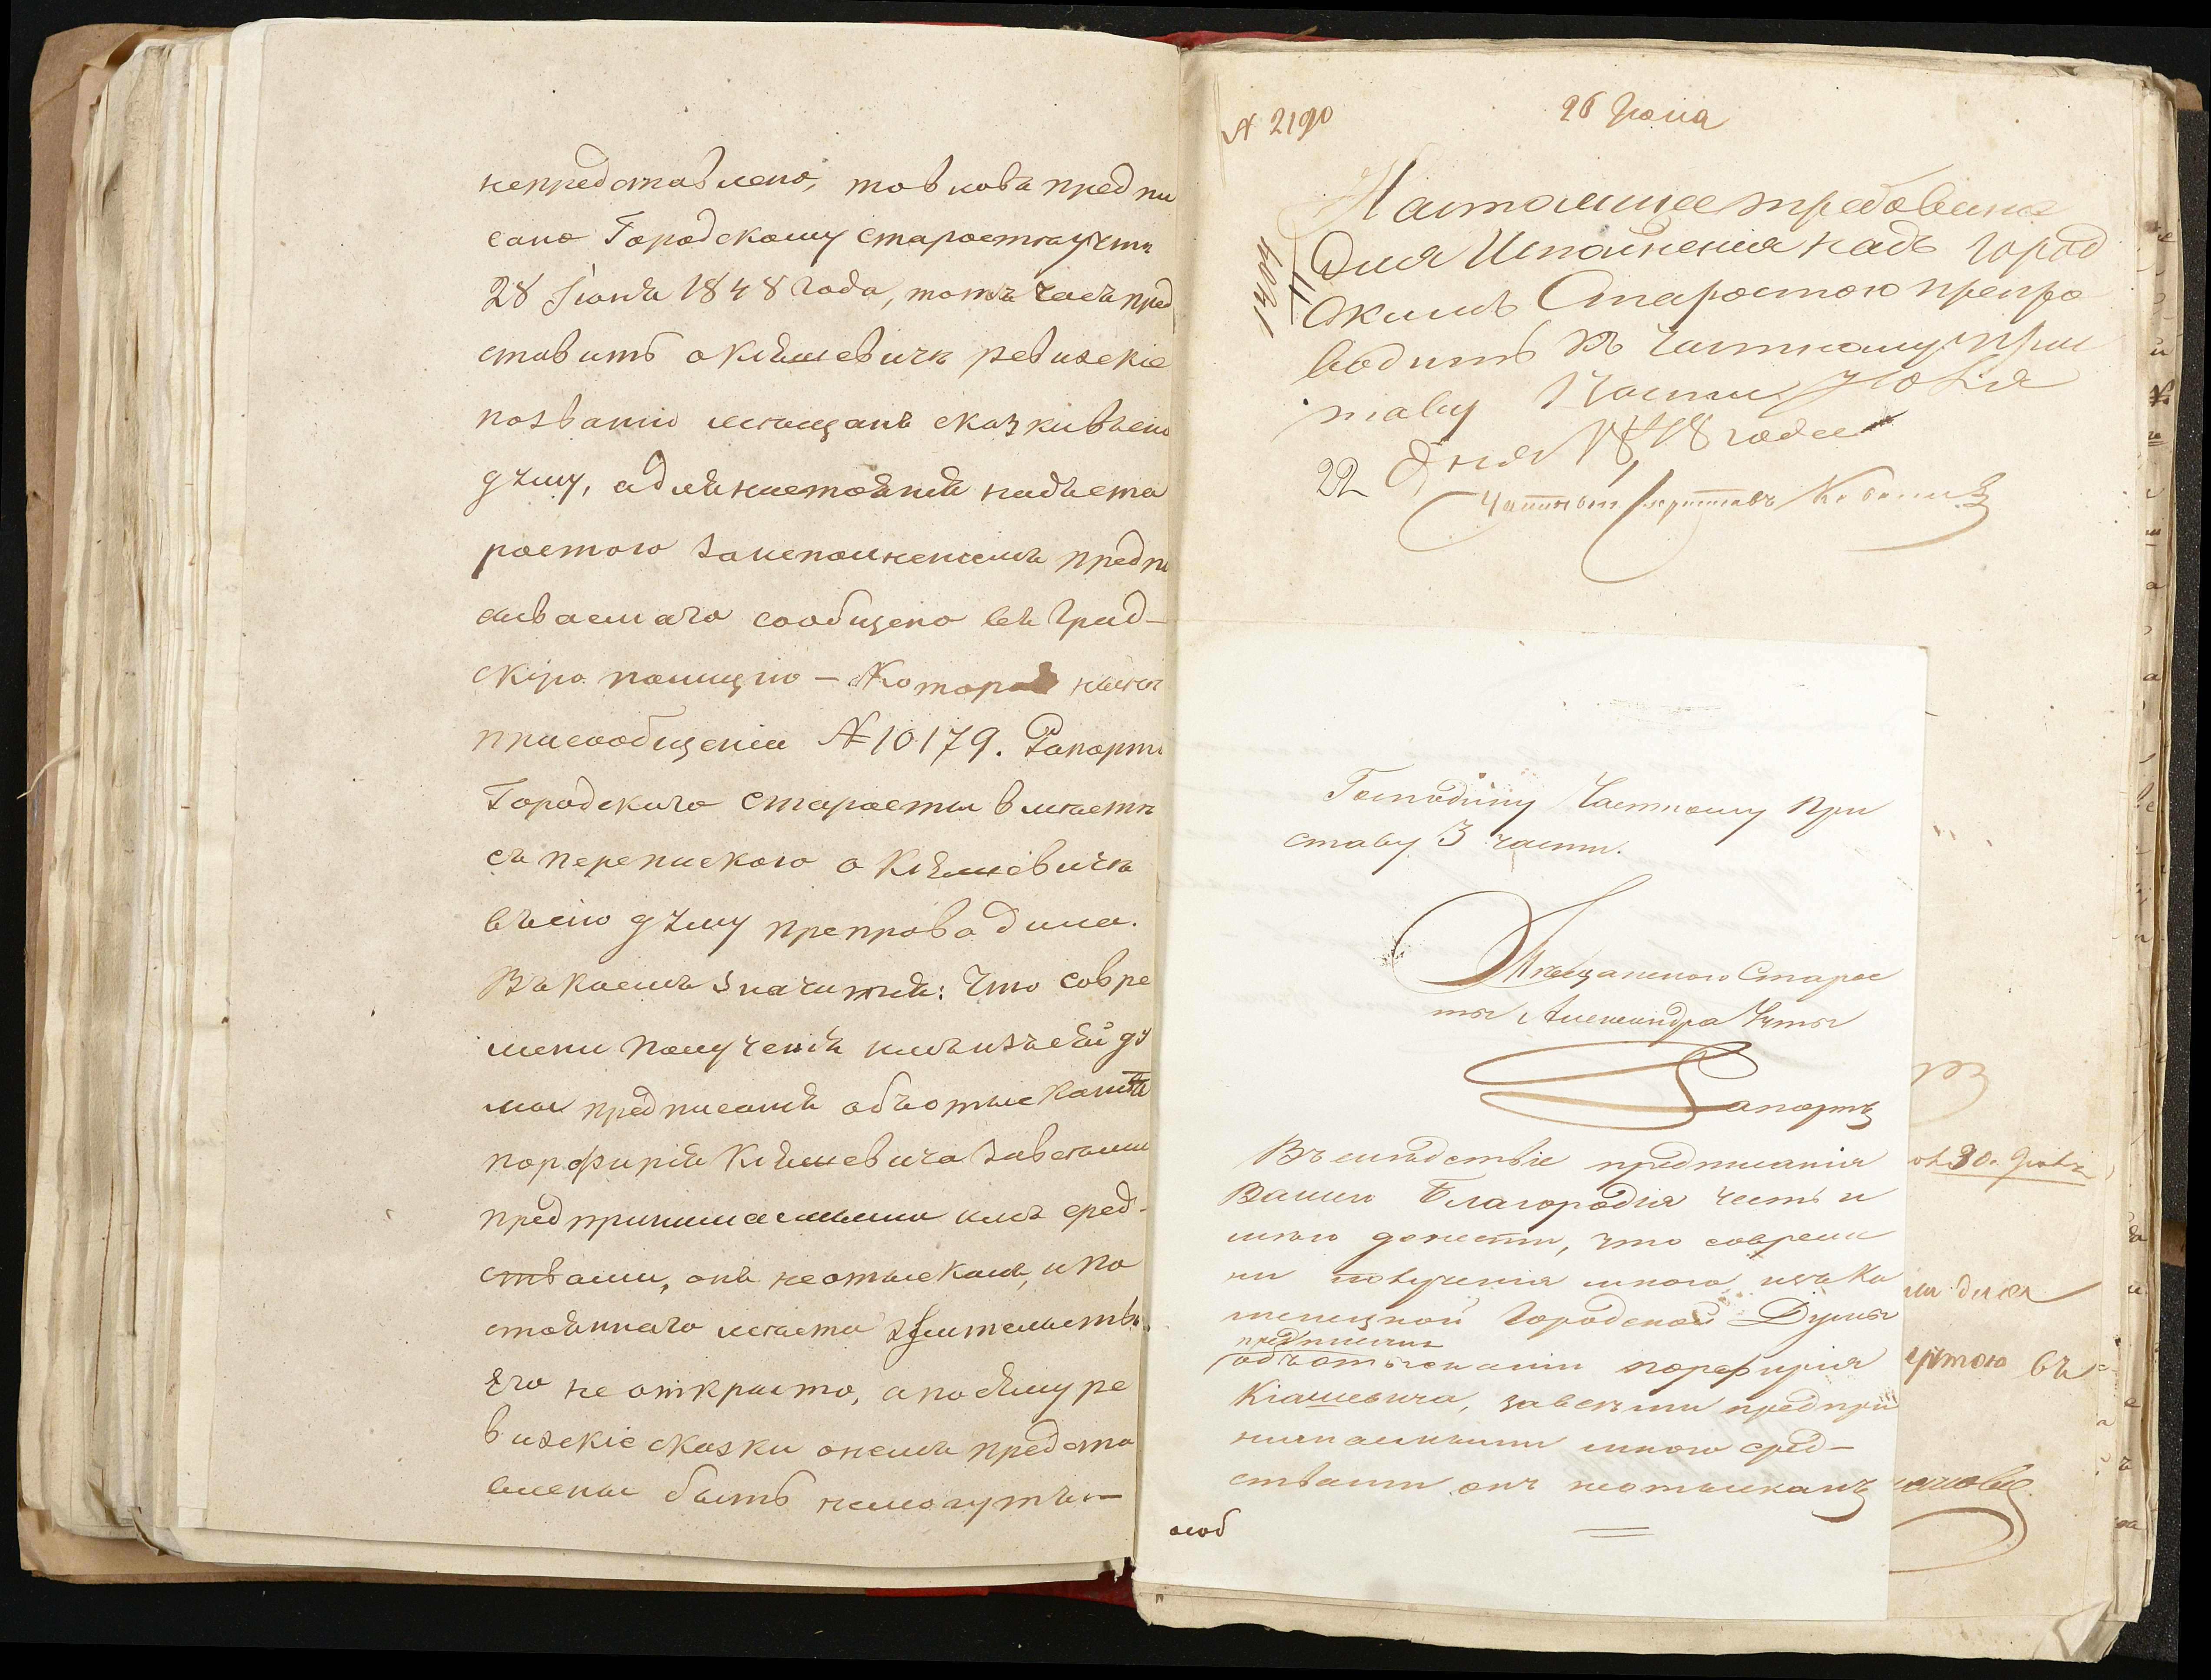 непредставлено, товновь предпи
сано Городскому старостѣ Учти
28 Іюня 1848 года, тотъ часъ пред
ставить о Кіяшевичѣ ревизскіе
позванію мѣщанъ сказки въсію
думу, а для настоянія надъ ста
ростою заисполненіемъ предпи
сываемаго сообщено въ Град-
скую полицію – Которая нынѣ
присообщеніи № 10179. Рапортъ
Городскаго старосты вмѣстѣ
съ перепискою о Кіяшевичѣ
въсію думу препроводила.
Въ коемъ значится: Что совре
мени полученія имъ изъ сей ду
мы предписанія объотысканіи
порфирія Кіяшевича завсѣми
предпринимаемыми имъ сред-
ствами, онъ неотысканъ, и по
стояннаго мѣста жительства
Его не открыто, а посему ре
визскіе сказки онемъ предста
влены быть немогутъ –
№ 2190
26 Іюня
1304
11
Настоящее требованіе
Для Исполненія надъ Город
Скимъ Старостою препро
водить Къ Частному при
ставу 3 Части Іюня
22 Дня 1848 года
Частный Приставъ
Господину Частному При
ставу 3 части.
Мѣщанскаго Старос
ты Александра Учты
Рапортъ
Въ слѣдствіе предписанія
Вашего Благородія честь и
мѣю донести, что современ
ни полученія мною изъ Ка
менецкой Городской Думы
предписанія
объотысканіи порфирія
Кіяшевича, завсѣми предпри
нимаемыми мною сред-
ствами онъ неотысканъ
особ
30. Іюня
для
въ